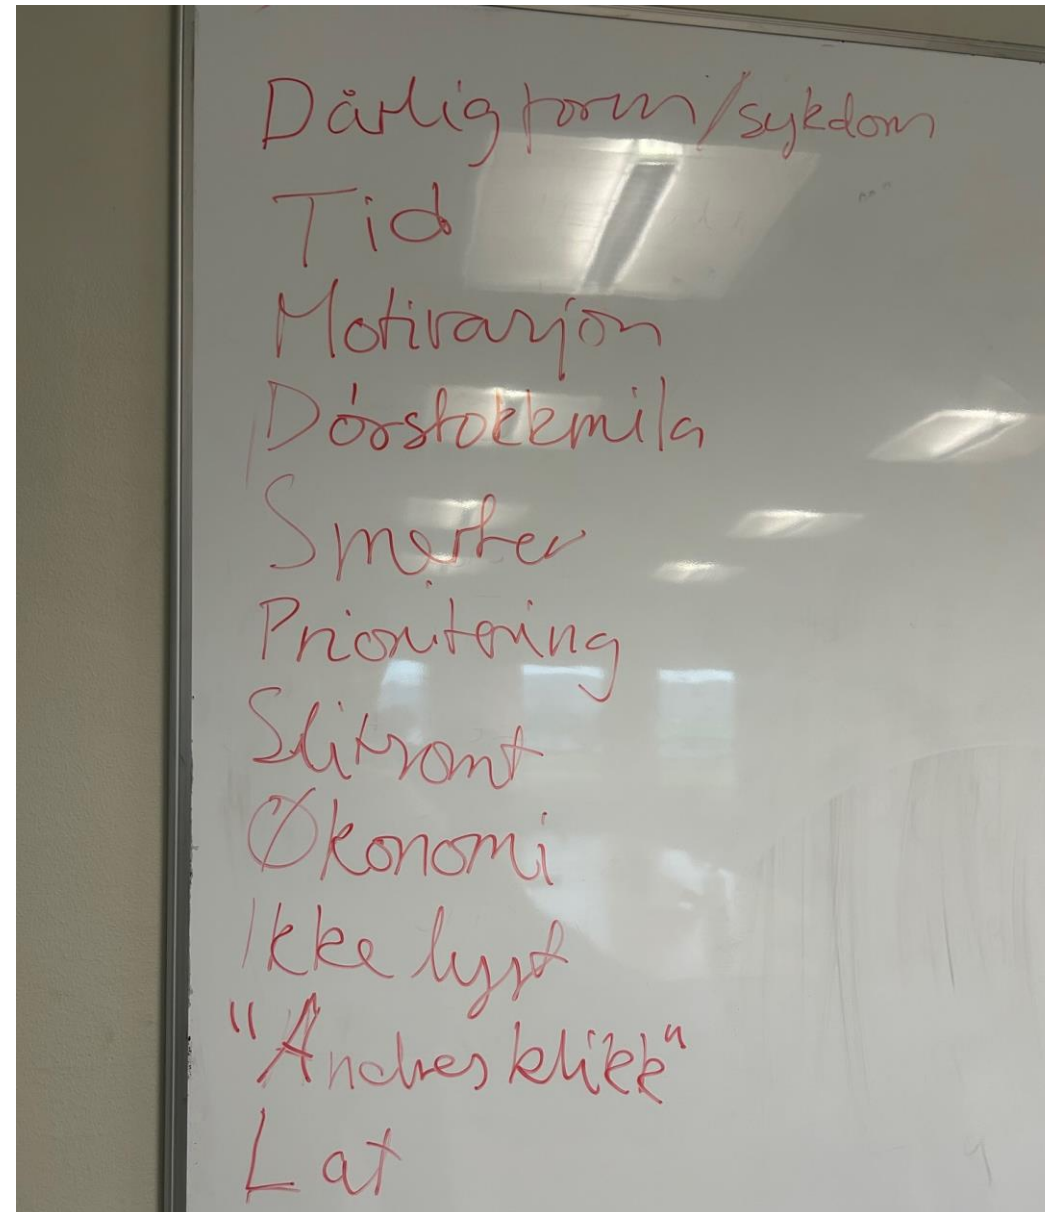 Dårlig form/sykdom
Tid
Motivasjon
Dørstokkmila
Smerter
Prioritering
Slitsomt
Økonomi
Ikke lyst
"Andres klikk"
Lat